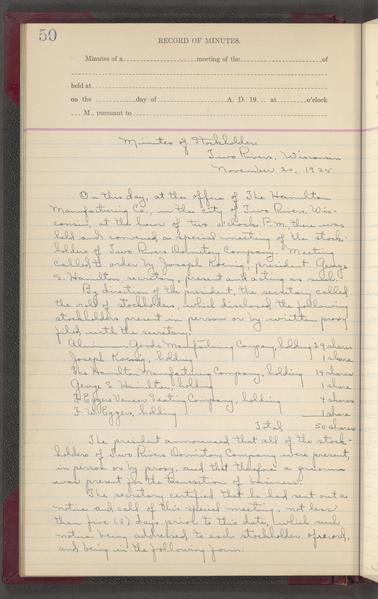 59
RECORD OF MINUTES.
Minutes of a meeting of the of
held at
on the day of A. D. 19 at o'clock
M., pursuant to
Minutes of Stockholders
Two Rivers, Wisconsin
November 20, 1925
On this day, at the office of The Hamilton
Manufacturing Co., in the city of Two Rivers, Wis-
consin, at the hour of two o'clock P.M. there was
held and convened a special meeting of the stock-
holders of Two Rivers Dormitory Company. Meeting
called to order by Joseph Koenig, president, George
S. Hamilton, secretary, present and acting as such.
By direction of the president, the secretary called
the roll of stockholders, which disclosed the following
stockholders present in person or by written proxy
filed with the secretary:
Aluminum Goods Manufacturing Company, holding 29 shares
Joseph Koenig, holding 1 share
The Hamilton Manufacturing Company, holding 14 shares
George S. Hamilton, holding 1 share
Eggers Veneer Seating Company, holding 4 shares
F. W. Eggers, holding 1 share
Total 50 shares
The president announced that all of the stock-
holders of Two Rivers Dormitory Company were present,
in person or by proxy, and that therefore a quorum
was present for the transaction of business.
The secretary certified that he had sent out a
notice and call of this special meeting, not less
than five (5) days prior to this date, which said
notice being addressed to each stockholder of record,
and being in the following form: